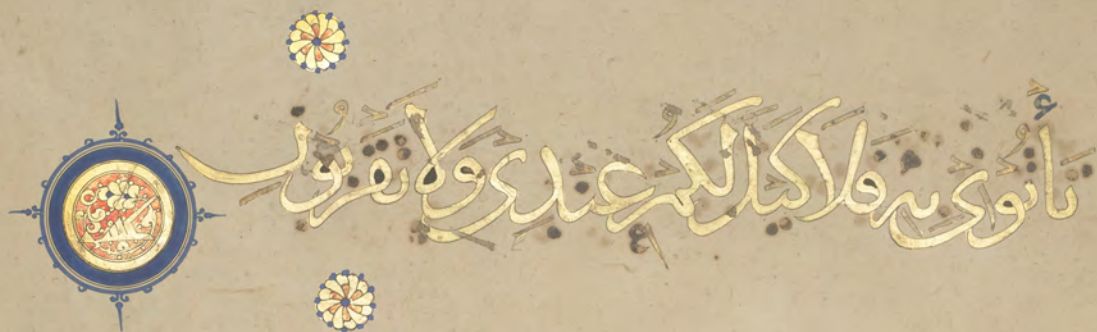 تَأْتُونِى بِهِۦ فَلَا كَيْلَ لَكُمْ عِندِى وَلَا تَقْرَبُونِ